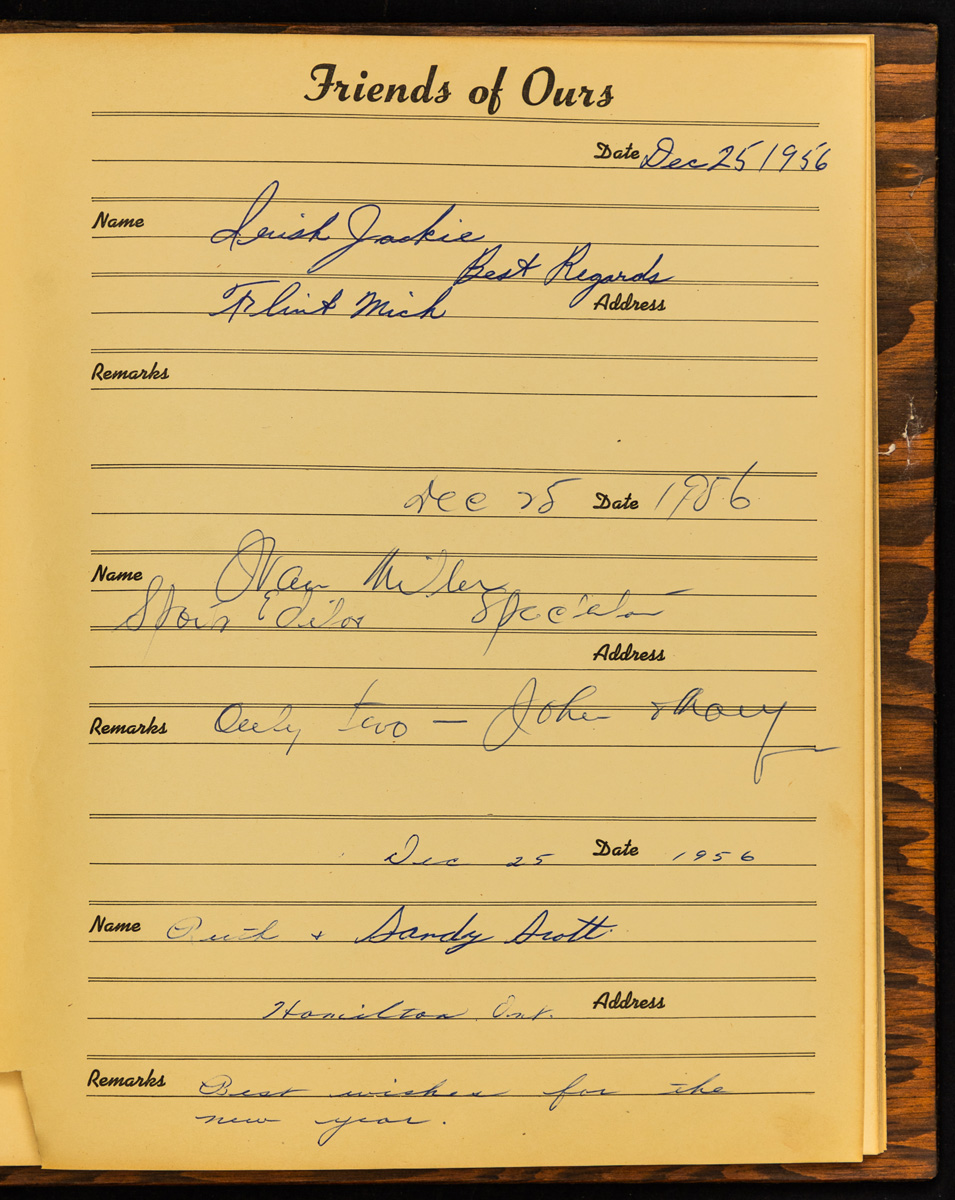 Friends of Ours
Date Dec 25 1956
Name Irish Jackie
Best Regards
Flint Mich Address
Remarks
Dec 25 Date 1956
Name Ivan Miller
Sports Editor Spectator
Address
Remarks Only two — John & Mary
Dec 25 Date 1956
Name Ruth + Sandy Scott
Hamilton Ont. Address
Remarks Best wishes for the
new year.